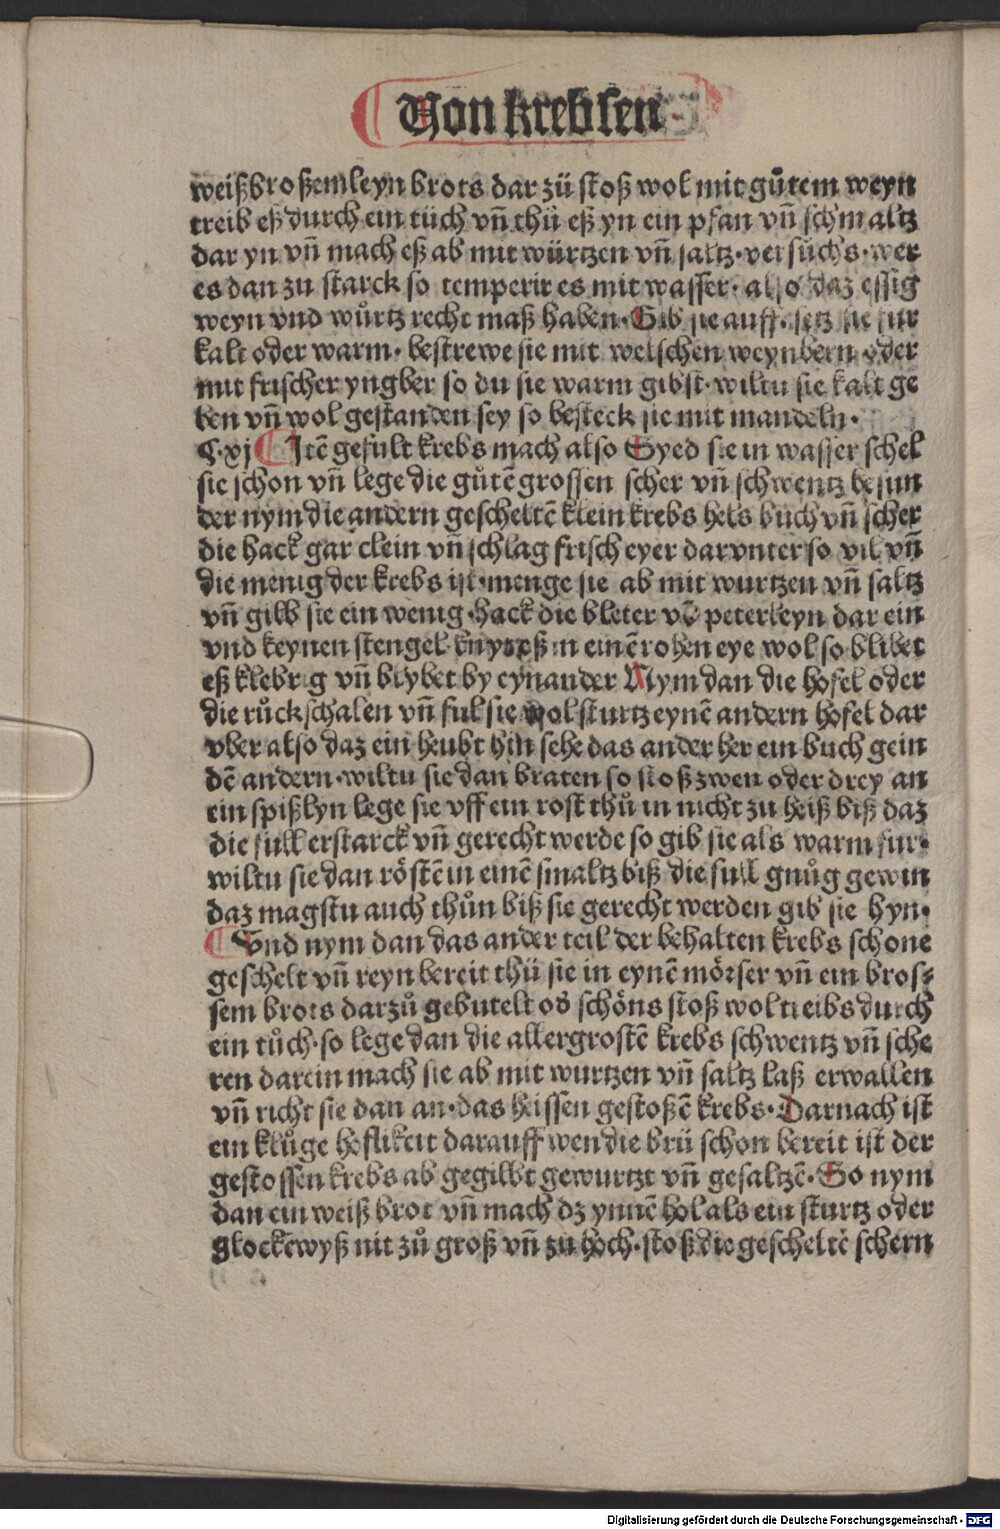 Von krebsen
weißbroßemleyn brots dar zü stoß wol mit gůtem weyn
treib eß durch ein tüch vñ thü eß yn ein pfan vñ schmaltz
dar yn vñ mach eß ab mit würtzen vñ saltz·versůchs·wer
es dan zu starck so temperir es mit wasser·also daz essig
weyn vnd wůrtz recht maß haben·Gib sie auff·setz sie fur
kalt oder warm·bestrewe sie mit welschen weynbern oder
mit frischer yngber so du sie warm gibst·wiltu sie kalt ge
ben vñ wol gestanden sey so besteck sie mit mandeln·
C·xj Itẽ gefult krebs mach also Syed sie in wasser schel
sie schon vñ lege die gůtẽ grossen scher vñ schwentz besun
der nym die andern gescheltẽ klein krebs hels büch vñ scher
die hack gar clein vñ schlag frisch eyer darvnter so vil vñ
die menig der krebs ist·menge sie ab mit wurtzen vñ saltz
vñ gilb sie ein wenig·hack die bleter võ peterleyn dar ein
vnd keynen stengel· eß in einẽ rohen eye wol so blibet
eß klebrig vñ blybet by eynander Nym dan die hofel oder
die růckschalen vñ ful sie wol sturtz eynẽ andern hofel dar
vber also daz ein heubt hin sehe das ander her ein buch gein
dẽ andern·wiltu sie dan braten so stoß zwen oder drey an
ein spißlyn lege sie vff ein rost thů in nicht zu heiß biß daz
die full erstarck vñ gerecht werde so gib sie als warm fur·
wiltu sie dan röstẽ in einẽ smaltz biß die full gnůg gewin
daz magstu auch thůn biß sie gerecht werden gib sie hyn·
Vnd nym dan das ander teil der behalten krebs schone
geschelt vñ reyn bereit thü sie in eynẽ mörser vñ ein bros⸗
sem brots darzů gebutelt od' schöns stoß wol treibs durch
ein tůch·so lege dan die allergrostẽ krebs schwentz vñ sche
ren darein mach sie ab mit wurtzen vñ saltz laß erwallen
vñ richt sie dan an·das heissen gestoßẽ krebs·Darnach ist
ein klůge hoflikeit darauff wen die brü schon bereit ist der
gestossen krebs ab gegilbt gewurtzt vñ gesaltzẽ·So nym
dan ein weiß brot vñ mach dz ynnẽ hol als ein sturtz oder
glockẽwyß nit zů groß vñ zu hoch·stoß die gescheltẽ schern
Digitalisierung gefördert durch die Deutsche Forschungsgemeinschaft - DFG